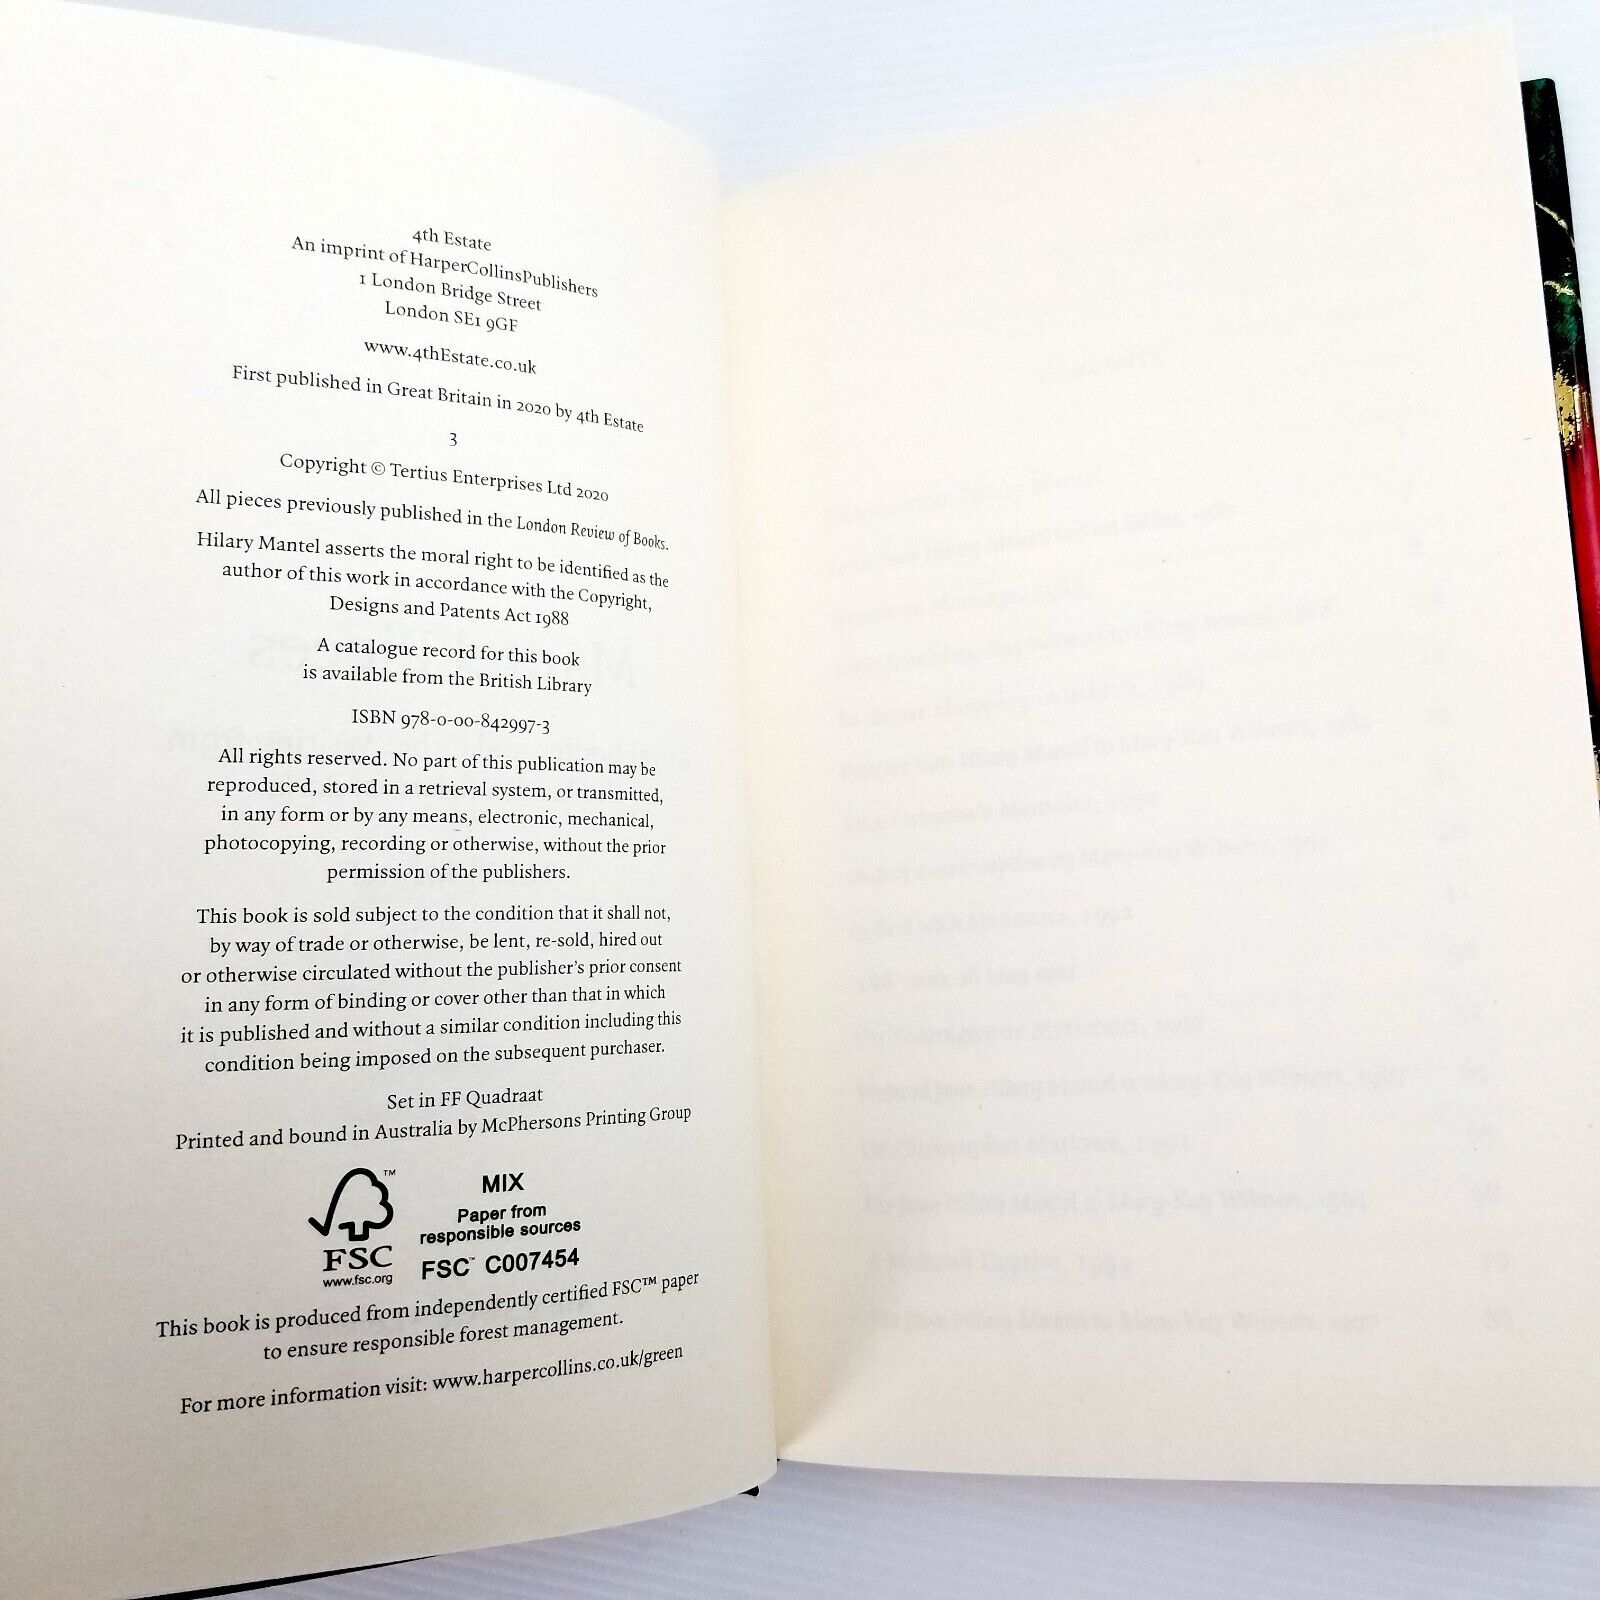 4th Estate
An imprint of HarperCollinsPublishers
1 London Bridge Street
London SE1 9GF
www.4thEstate.co.uk
First published in Great Britain in 2020 by 4th Estate
3
Copyright © Tertius Enterprises Ltd 2020
All pieces previously published in the London Review of Books.
Hilary Mantel asserts the moral right to be identified as the
author of this work in accordance with the Copyright,
Designs and Patents Act 1988
A catalogue record for this book
is available from the British Library
ISBN 978-0-00-842997-3
All rights reserved. No part of this publication may be
reproduced, stored in a retrieval system, or transmitted,
in any form or by any means, electronic, mechanical,
photocopying, recording or otherwise, without the prior
permission of the publishers.
This book is sold subject to the condition that it shall not,
by way of trade or otherwise, be lent, re-sold, hired out
or otherwise circulated without the publisher's prior consent
in any form of binding or cover other than that in which
it is published and without a similar condition including this
condition being imposed on the subsequent purchaser.
Set in FF Quadraat
Printed and bound in Australia by McPhersons Printing Group
FSC
www.fsc.org
MIX
Paper from
responsible sources
FSC™ C007454
This book is produced from independently certified FSC™ paper
to ensure responsible forest management.
For more information visit: www.harpercollins.co.uk/green